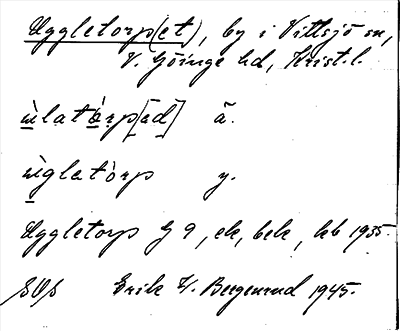 Uggletorp(et), by i Vittsjö sn,
V. Göinge hd, Krist. l.
ùlatòrp[ǝd] ä.
ùglatòrp y.
Uggletorp G 9, ek, bek, kb 1955.
SOS Erik V. Bergenrud 1945.